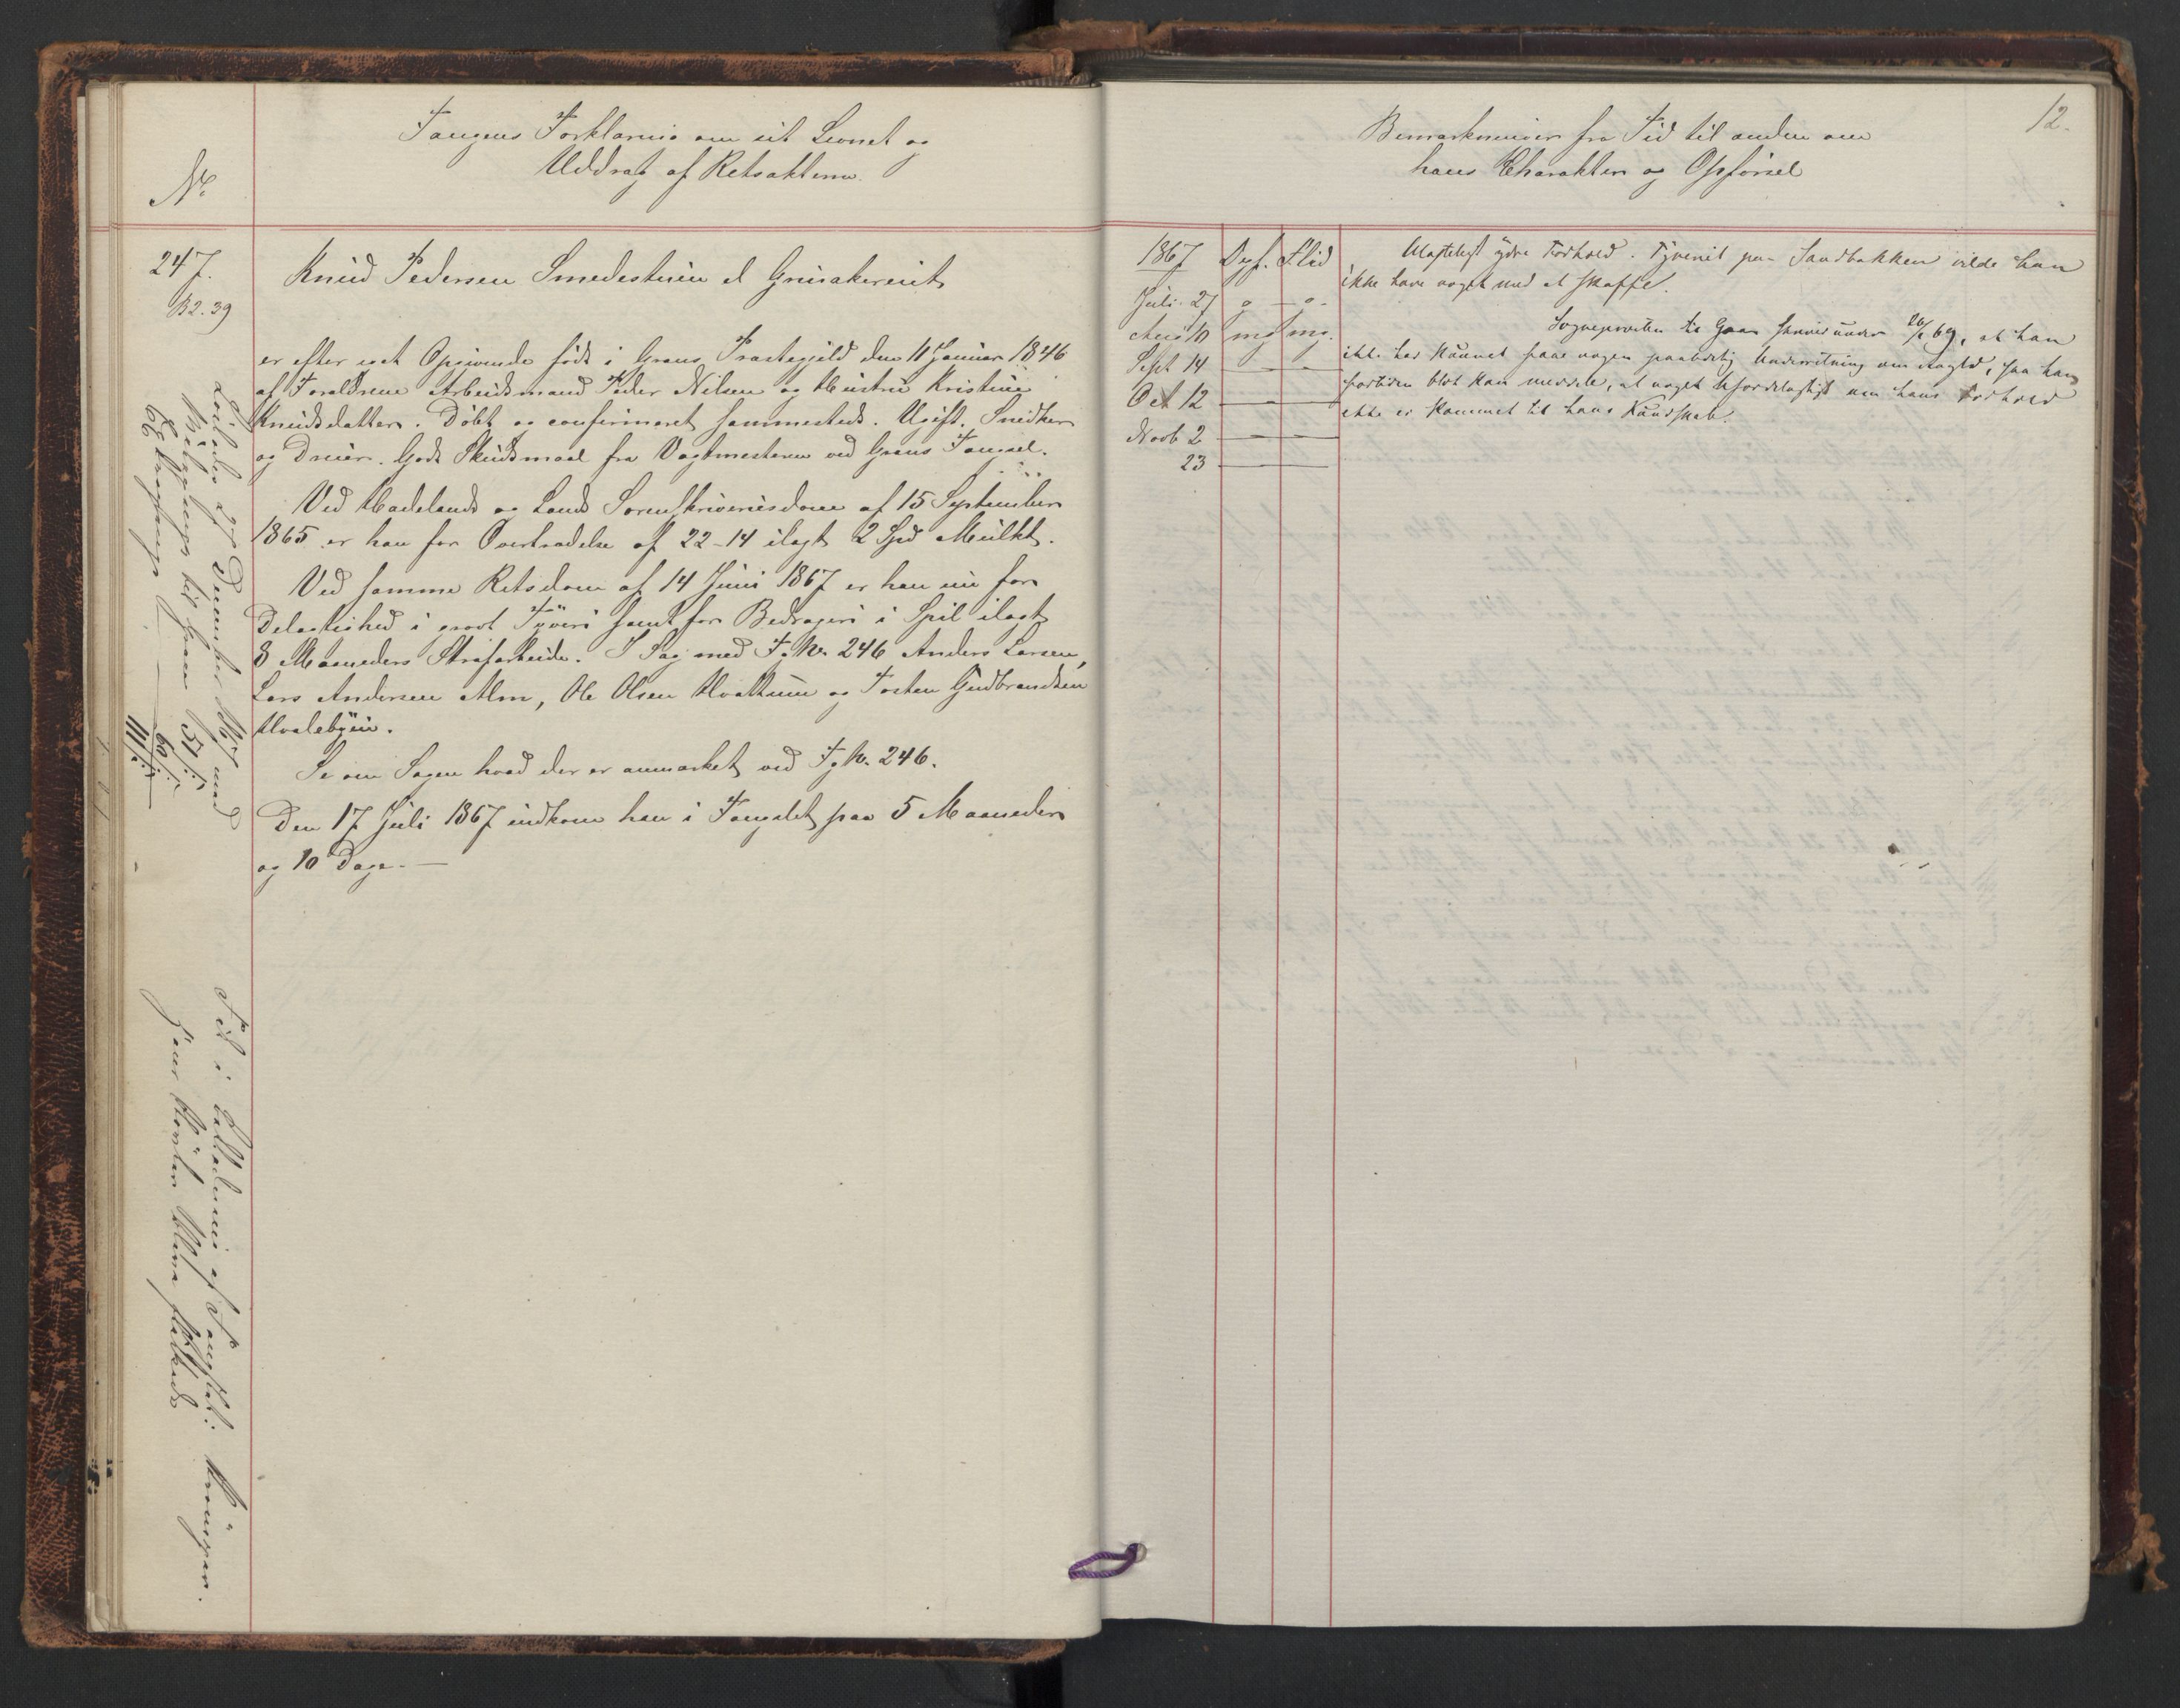 Fangens Forklaring om sit Levnet og
Uddrag af Retsakterne.
No
247.
B2.39
Knud Pedersen Smedestuen el Grinakereiet
er efter eget Opgivende født i Grans Præstegjeld den 11 Januar 1846
af Forældrene Arbeidsmand Peder Nilsen og Hustru Kristine
Knudsdatter. Døbt og confirmeret sammesteds. Ugift. Snedker
og Dreier. Godt Skudsmaal fra Vagtmesteren ved Grans Fængsel.
Ved Hadelands og Lands Sorenskriveriesdom af 15 September
1865 er han for Overtrædelse af 22-14 ilagt 2 Spd Mulkt.
Ved samme Retsdom af 14 Juni 1867 er han nu for
Delagtighed i grovt Tyveri samt for Bedrageri i Spil ilagt
8 Maaneders Strafarbeide. I Sag med F. No. 246 Anders Larsen,
Lars Andersen Alm, Ole Olsen Hvattum og Tosten Gudbrandsen
Hvalebyeie.
Se om Sagen hvad der er anmærket ved Fg No. 246.
Den 17 Juli 1867 indkom han i Fængslet paa 5 Maaneder
og 10 Dage. —
Løslades 27 December 1867 med
51
60
111
Fik i Lødighed af Fængslet:
12.
Bemærkninger fra Tid til anden om
hans Charakter og Opførsel
1867 Opf. Flid
Juli 27 g — g.
Aug 10 mg mg.
Sept 14 — —
Oct 12 — —
Novb 2 — —
23 — —
Upaaklageligt ydre Forhold. Tyveriet paa Sandbakken vilde han
ikke have noget med at skaffe.
Sogneprovsten til Gran skriver under 26/2 69, at han
ikke har kunnet faae nogen paalidelig Underretning om Angld, saa han
forøvrigt blot kan meddele, at noget ufordelagtigt om hans Forhold
ikke er kommet til hans Kundskab.